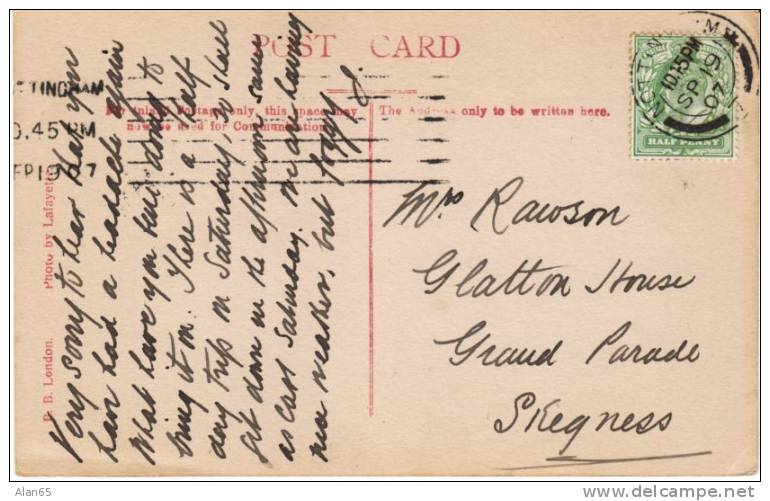 POST CARD
For Inland Postage only, this space may
now be used for Communication.
The Address only to be written here.
NOTTINGHAM
10.45 PM
SP 19
07
HALF PENNY
TTINGHAM
0.45 PM
EP 19 07
Very sorry to hear that you
have had a headache again
What have you been doing to
bring it on. There is a half
day trip on Saturday, we shall
get down in the afternoon same
as last Saturday. We are having
nice weather, but foggy.
J.
Mrs Rawson
Glatton House
Grand Parade
Skegness
B. B. London. Photo by Lafayette
Alan65
www.delcampe.net